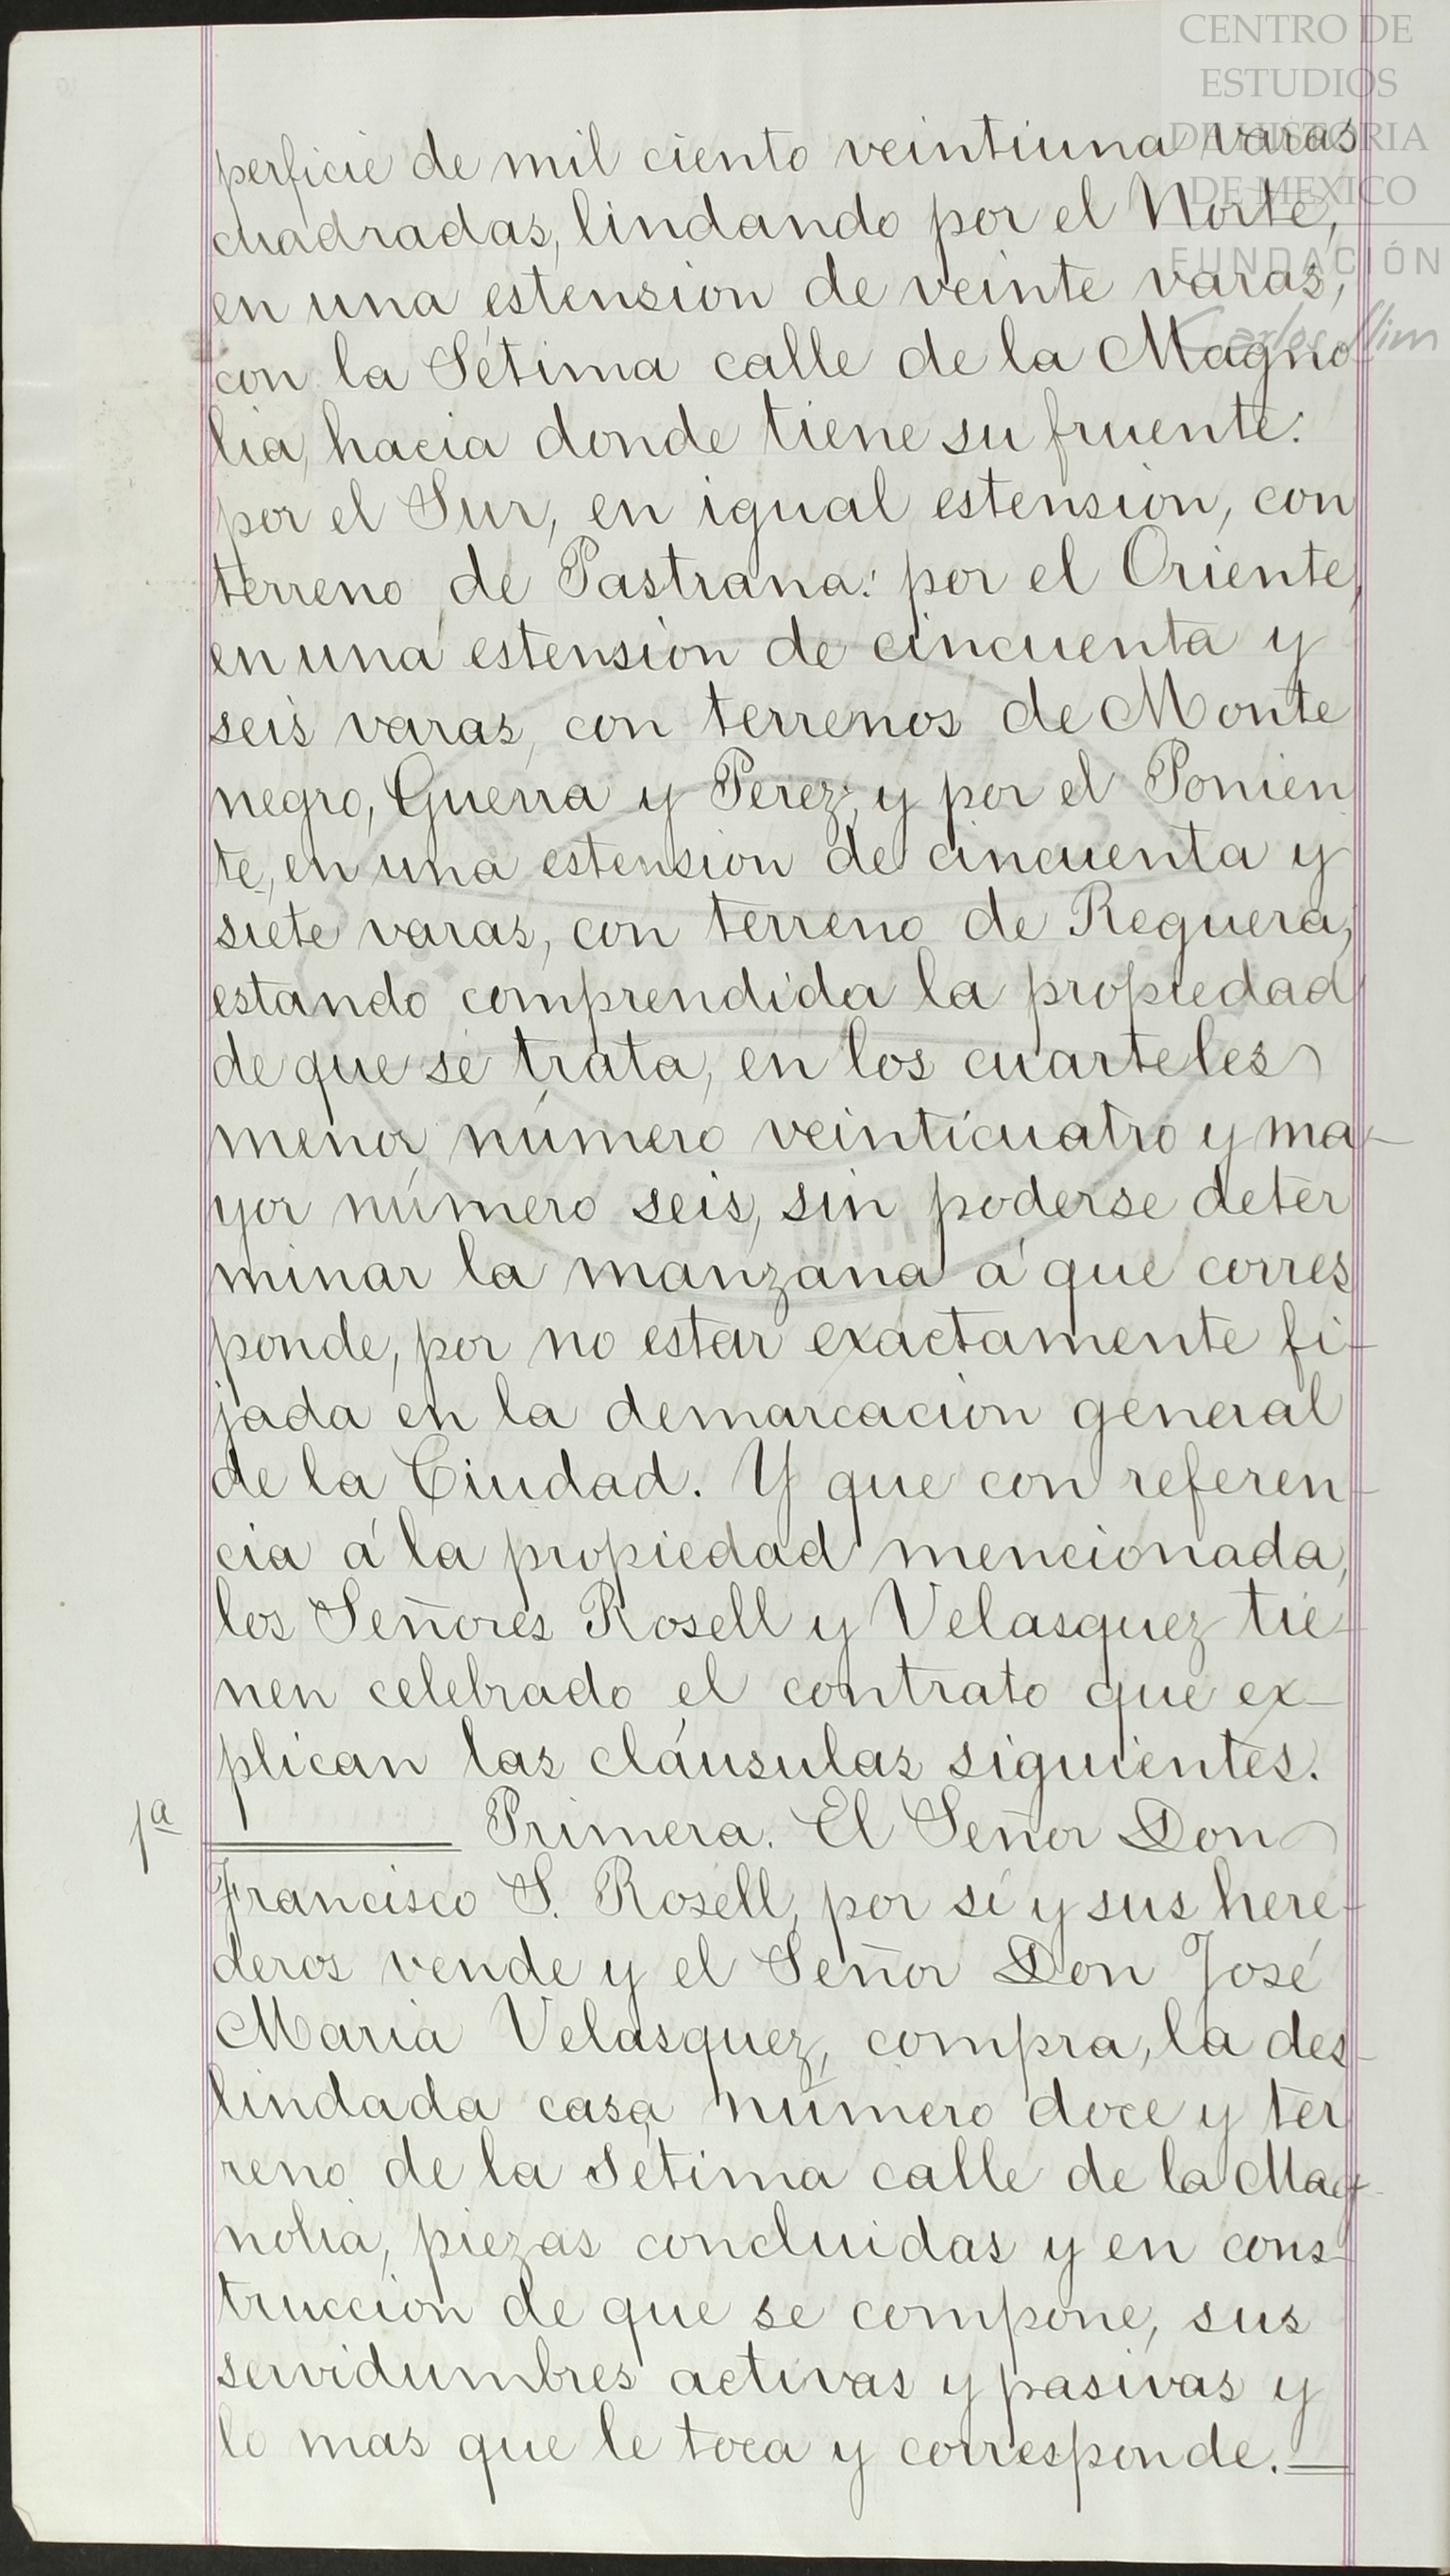 CENTRO DE
ESTUDIOS
DE HISTORIA
DE MEXICO
FUNDACIÓN
Carlos Slim
perficie de mil ciento veintiuna varas
cuadradas, lindando por el Norte,
en una estension de veinte varas,
con la Sétima calle de la Magno
lia, hacia donde tiene su fruente:
por el Sur, en igual estension, con
terreno de Pastrana: por el Oriente,
en una estension de cincuenta y
seis varas, con terrenos de Monte
negro, Guerra y Perez; y por el Ponien
te, en una estension de cincuenta y
siete varas, con terreno de Reguera,
estando comprendida la propiedad
de que se trata, en los cuarteles
menor número veinticuatro y ma-
yor número seis, sin poderse deter
minar la manzana á que corres
ponde, por no estar exactamente fi-
jada en la demarcacion general
de la Ciudad. Y que con referen-
cia á la propiedad mencionada,
los Señores Rosell y Velasquez tie-
nen celebrado el contrato que ex-
plican las cláusulas siguientes.
1ª Primera. El Señor Don
Francisco S. Rosell, por sí y sus here-
deros vende y el Señor Don José
Maria Velasquez, compra, la des-
lindada casa número doce y ter
reno de la Sétima calle de la Mag-
nolia, piezas concluidas y en cons-
truccion de que se compone, sus
servidumbres activas y pasivas y
lo mas que le toca y corresponde.